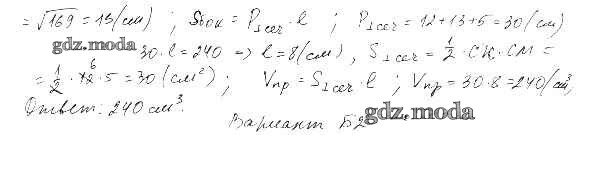 = √169 = 13 (см) ; Sбок = P⊥сег · l ; P⊥сег = 12 + 13 + 5 = 30 (см)
gdz.moda 30 · l = 240 => l = 8 (см) , S⊥сег = 1/2 · СК · СМ =
= 1/2 · 12 6 · 5 = 30 (см²) ; Vпр = S⊥сег · l ; Vпр = 30 · 8 = 240 (см³)
Ответ: 240 см³. gdz.moda
Вариант Б2